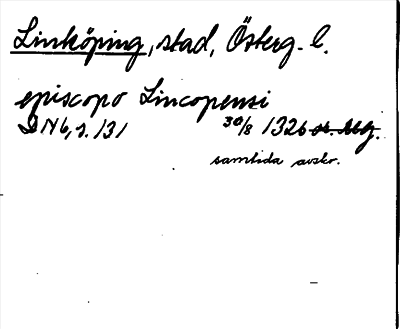 Linköping, stad, Österg. l.
episcopo Lincopensi
DN 6, s. 131 30/8 1326 or. Utg.
samtida avskr.